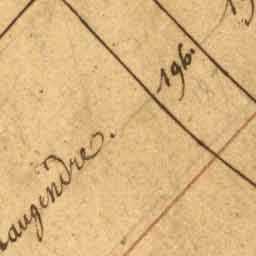 augendre.
196.